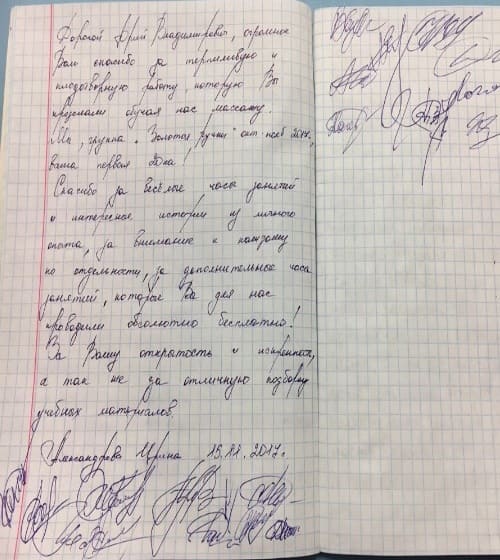 Дорогой Юрий Владимирович, огромное
Вам спасибо за терпеливую и
плодотворную работу которую Вы
проделали обучая нас массажу.
Мы, группа "Золотые ручки" окт нояб 2017,
ваша первая
Спасибо за весёлые часы занятий
и интересные истории из личного
опыта, за внимание к каждому
по отдельности, за дополнительные часы
занятий, которые Вы для нас
проводили абсолютно бесплатно!
За Вашу открытость и искренность,
а так же за отличную подборку
учебных материалов.
Александрова Ирина 15.11.2017г.